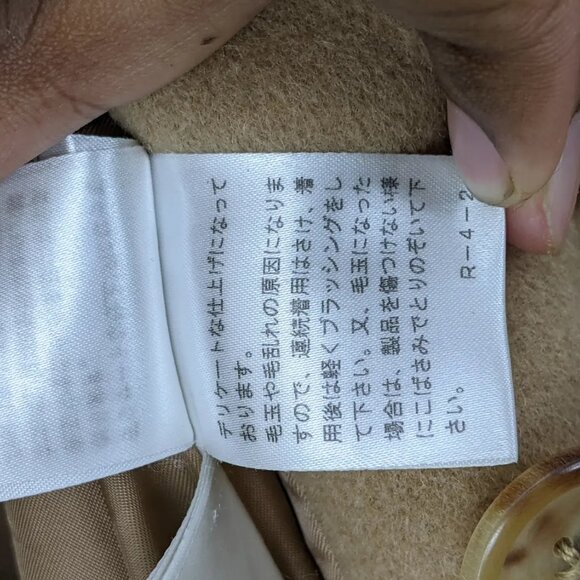 デリケートな仕上げになって
おります。
毛玉や毛乱れの原因になりま
すので、連続着用はさけ、着
用後は軽くブラッシングをし
て下さい。又、毛玉になった
場合は、製品を傷つけない様
にこばさみでとりのぞいて下
さい。
R-4-2